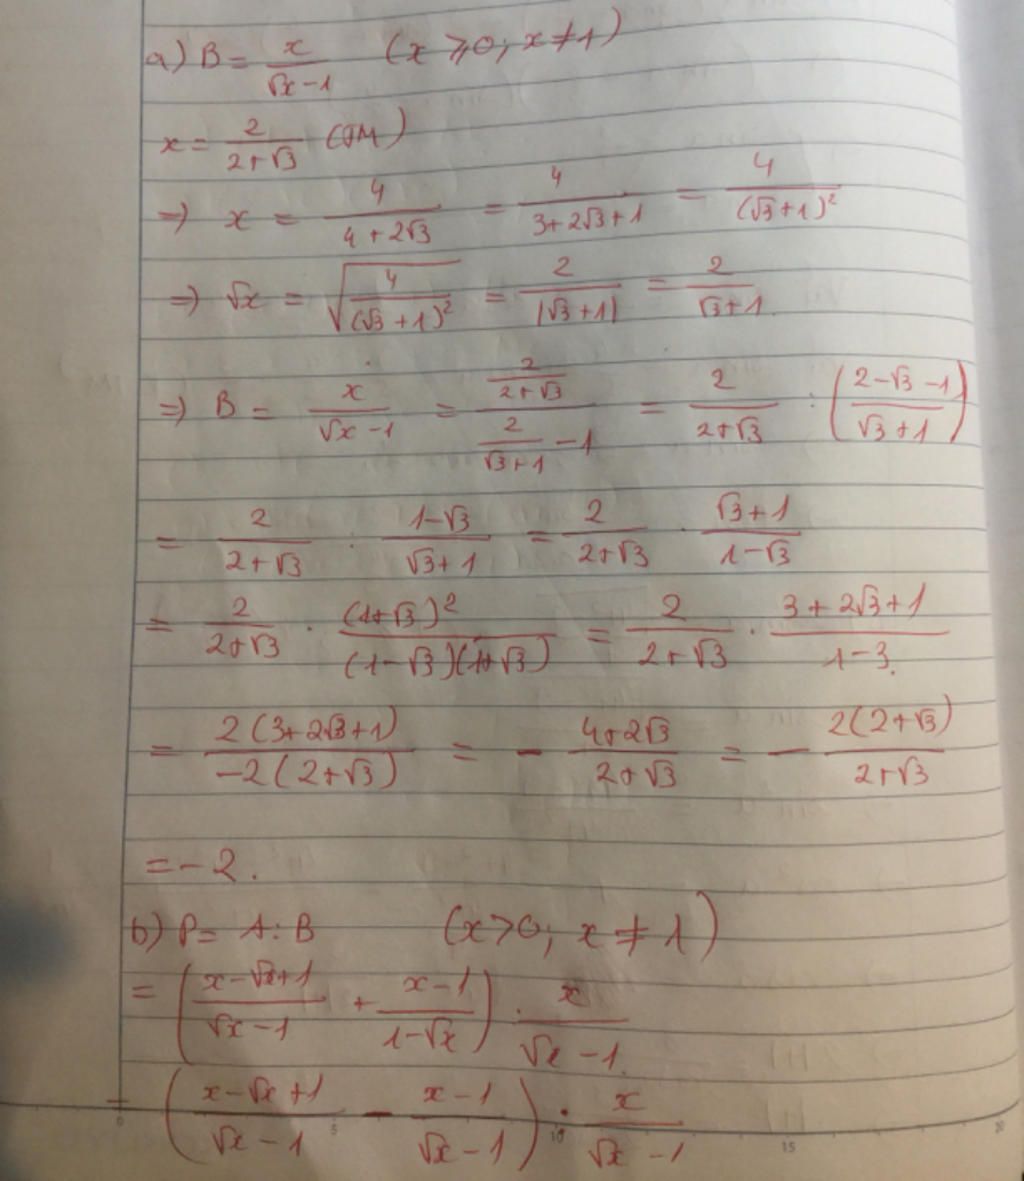 a) B = x/(√x - 1) (x ⩾ 0; x ≠ 1)
x = 2/(2+√3) (TM)
=) x = 4/(4+2√3) = 4/(3+2√3+1) = 4/(√3+1)²
=) √x = √(4/(√3+1)²) = 2/|√3+1| = 2/(√3+1)
=) B = x/(√x - 1) = (2/(2+√3))/(2/(√3+1) - 1) = 2/(2+√3) : ((2-√3-1)/(√3+1))
= 2/(2+√3) : (1-√3)/(√3+1) = 2/(2+√3) . (√3+1)/(1-√3)
= 2/(2+√3) . (1+√3)²/((1-√3)(1+√3)) = 2/(2+√3) . (3+2√3+1)/(1-3)
= 2(3+2√3+1)/(-2(2+√3)) = - (4+2√3)/(2+√3) = - 2(2+√3)/(2+√3)
= -2.
b) P = A : B (x > 0; x ≠ 1)
= ((x-√x+1)/(√x-1) + (x-1)/(1-√x)) : x/(√x-1)
= ((x-√x+1)/(√x-1) - (x-1)/(√x-1)) : x/(√x-1)
0 5 10 15 20